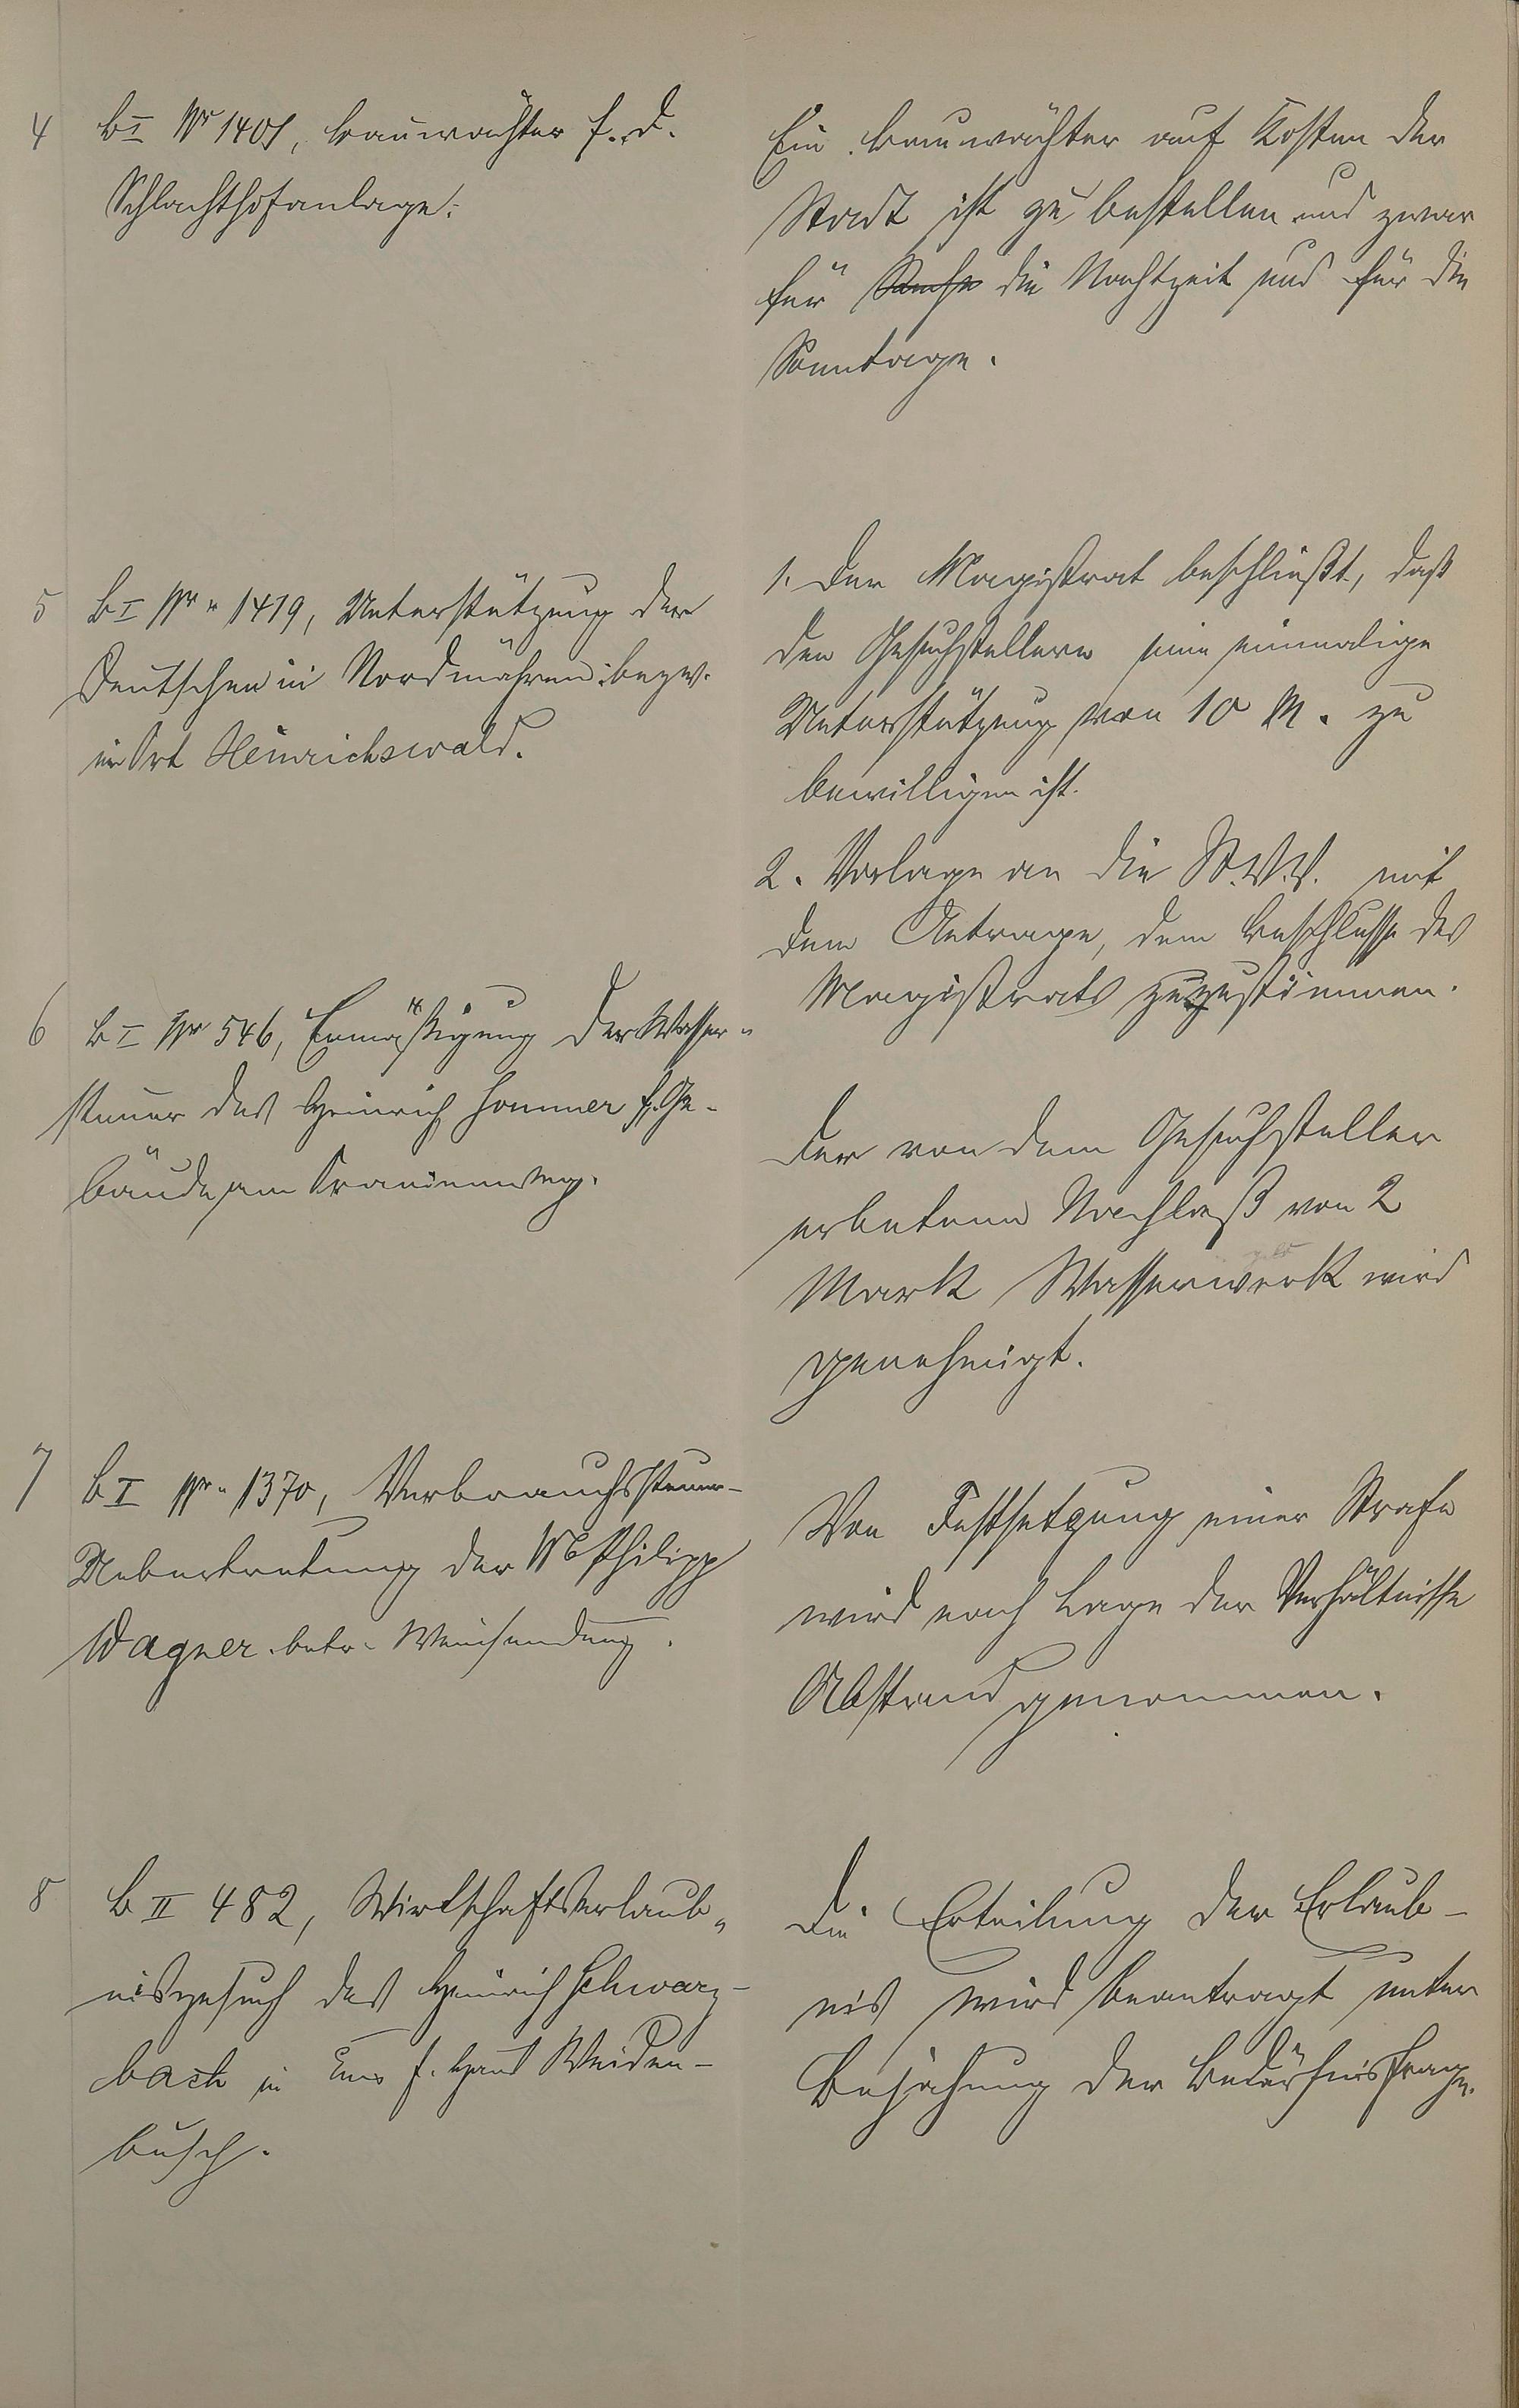 4 B I Nr 1401, Bauwächter f. d.
Schlachthofanlage.
Ein Bauwächter auf Kosten der
Stadt ist zu bestellen und zwar
für die Nachtzeit und für die
Sonntage.
5 B I Nr. 1419, Unterstützung der
Deutschen in Nordmähren bezw.
im Ort Heinrichswald.
1. Der Magistrat beschließt, daß
den Gesuchstellern eine einmalige
Unterstützung von 10 M. zu
bewilligen ist.
2. Vorlage an die St.V.V. mit
dem Antrage, dem Beschlusse des
Magistrats zuzustimmen.
6 B I Nr 546, Ermäßigung der Wasser-
steuer des Heinrich Sommer f. Ge-
bäude am
Der von dem Gesuchsteller
erbetene Nachlaß von 2
Mark Wasserwerk wird
genehmigt.
7 B I Nr. 1370, Verbrauchssteuer-
Uebertretung der Philipp
Wagner betr. Weinsendung.
Von Festsetzung einer Strafe
wird nach Lage der Verhältnisse
Abstand genommen.
8 B II 482, Wirtschaftserlaub-
nisgesuch des Heinrich Schwarz-
bach in Ems f. Haus Weiden-
busch.
Die Erteilung der Erlaub-
nis wird beantragt unter
Bejahung der Bedürfnisfrage.